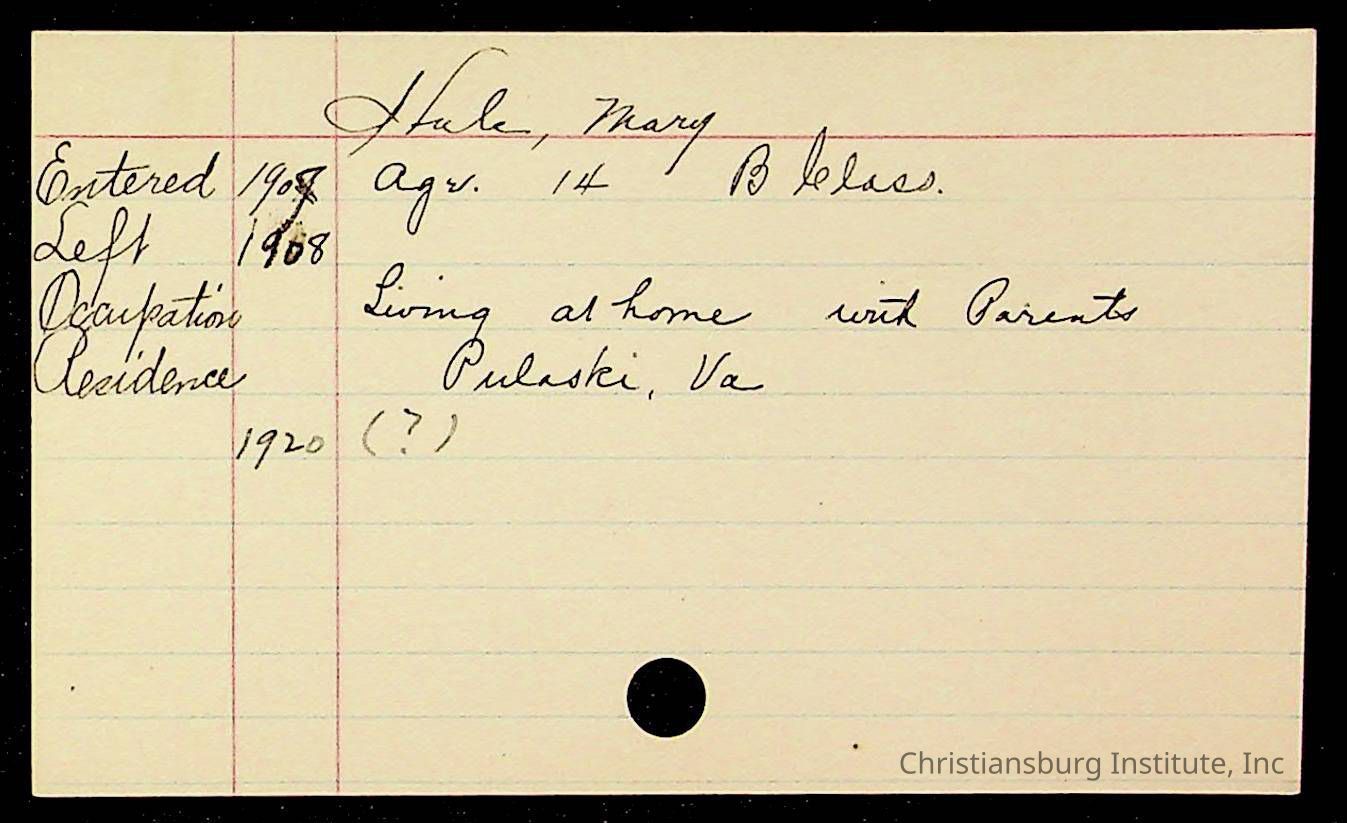 Hale, Mary
Entered 1907 Age. 14 B Class.
Left 1908
Occupation Living at home with Parents
Residence Pulaski, Va
1920 (?)
Christiansburg Institute, Inc